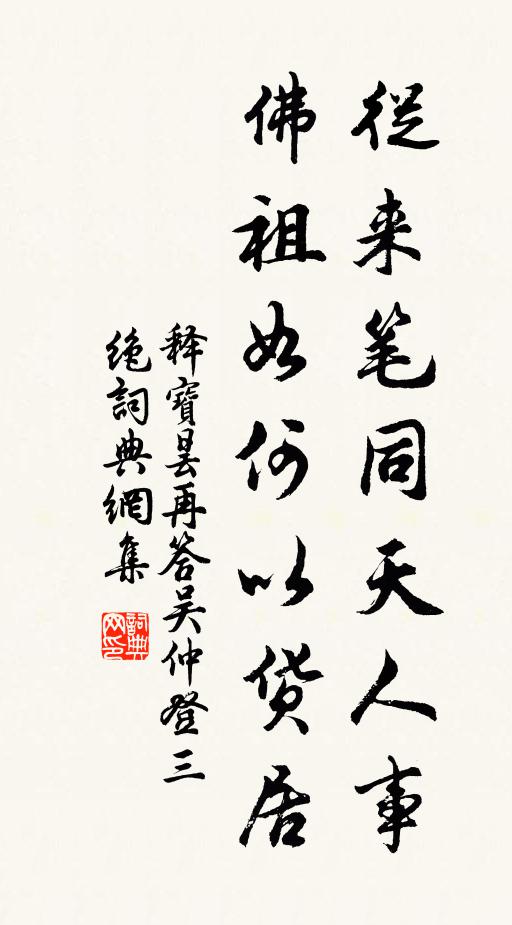 從来笔同天人事
佛祖如何以貨居
释寶昙再答吴仲登三
绝詞典網集
詞典网印